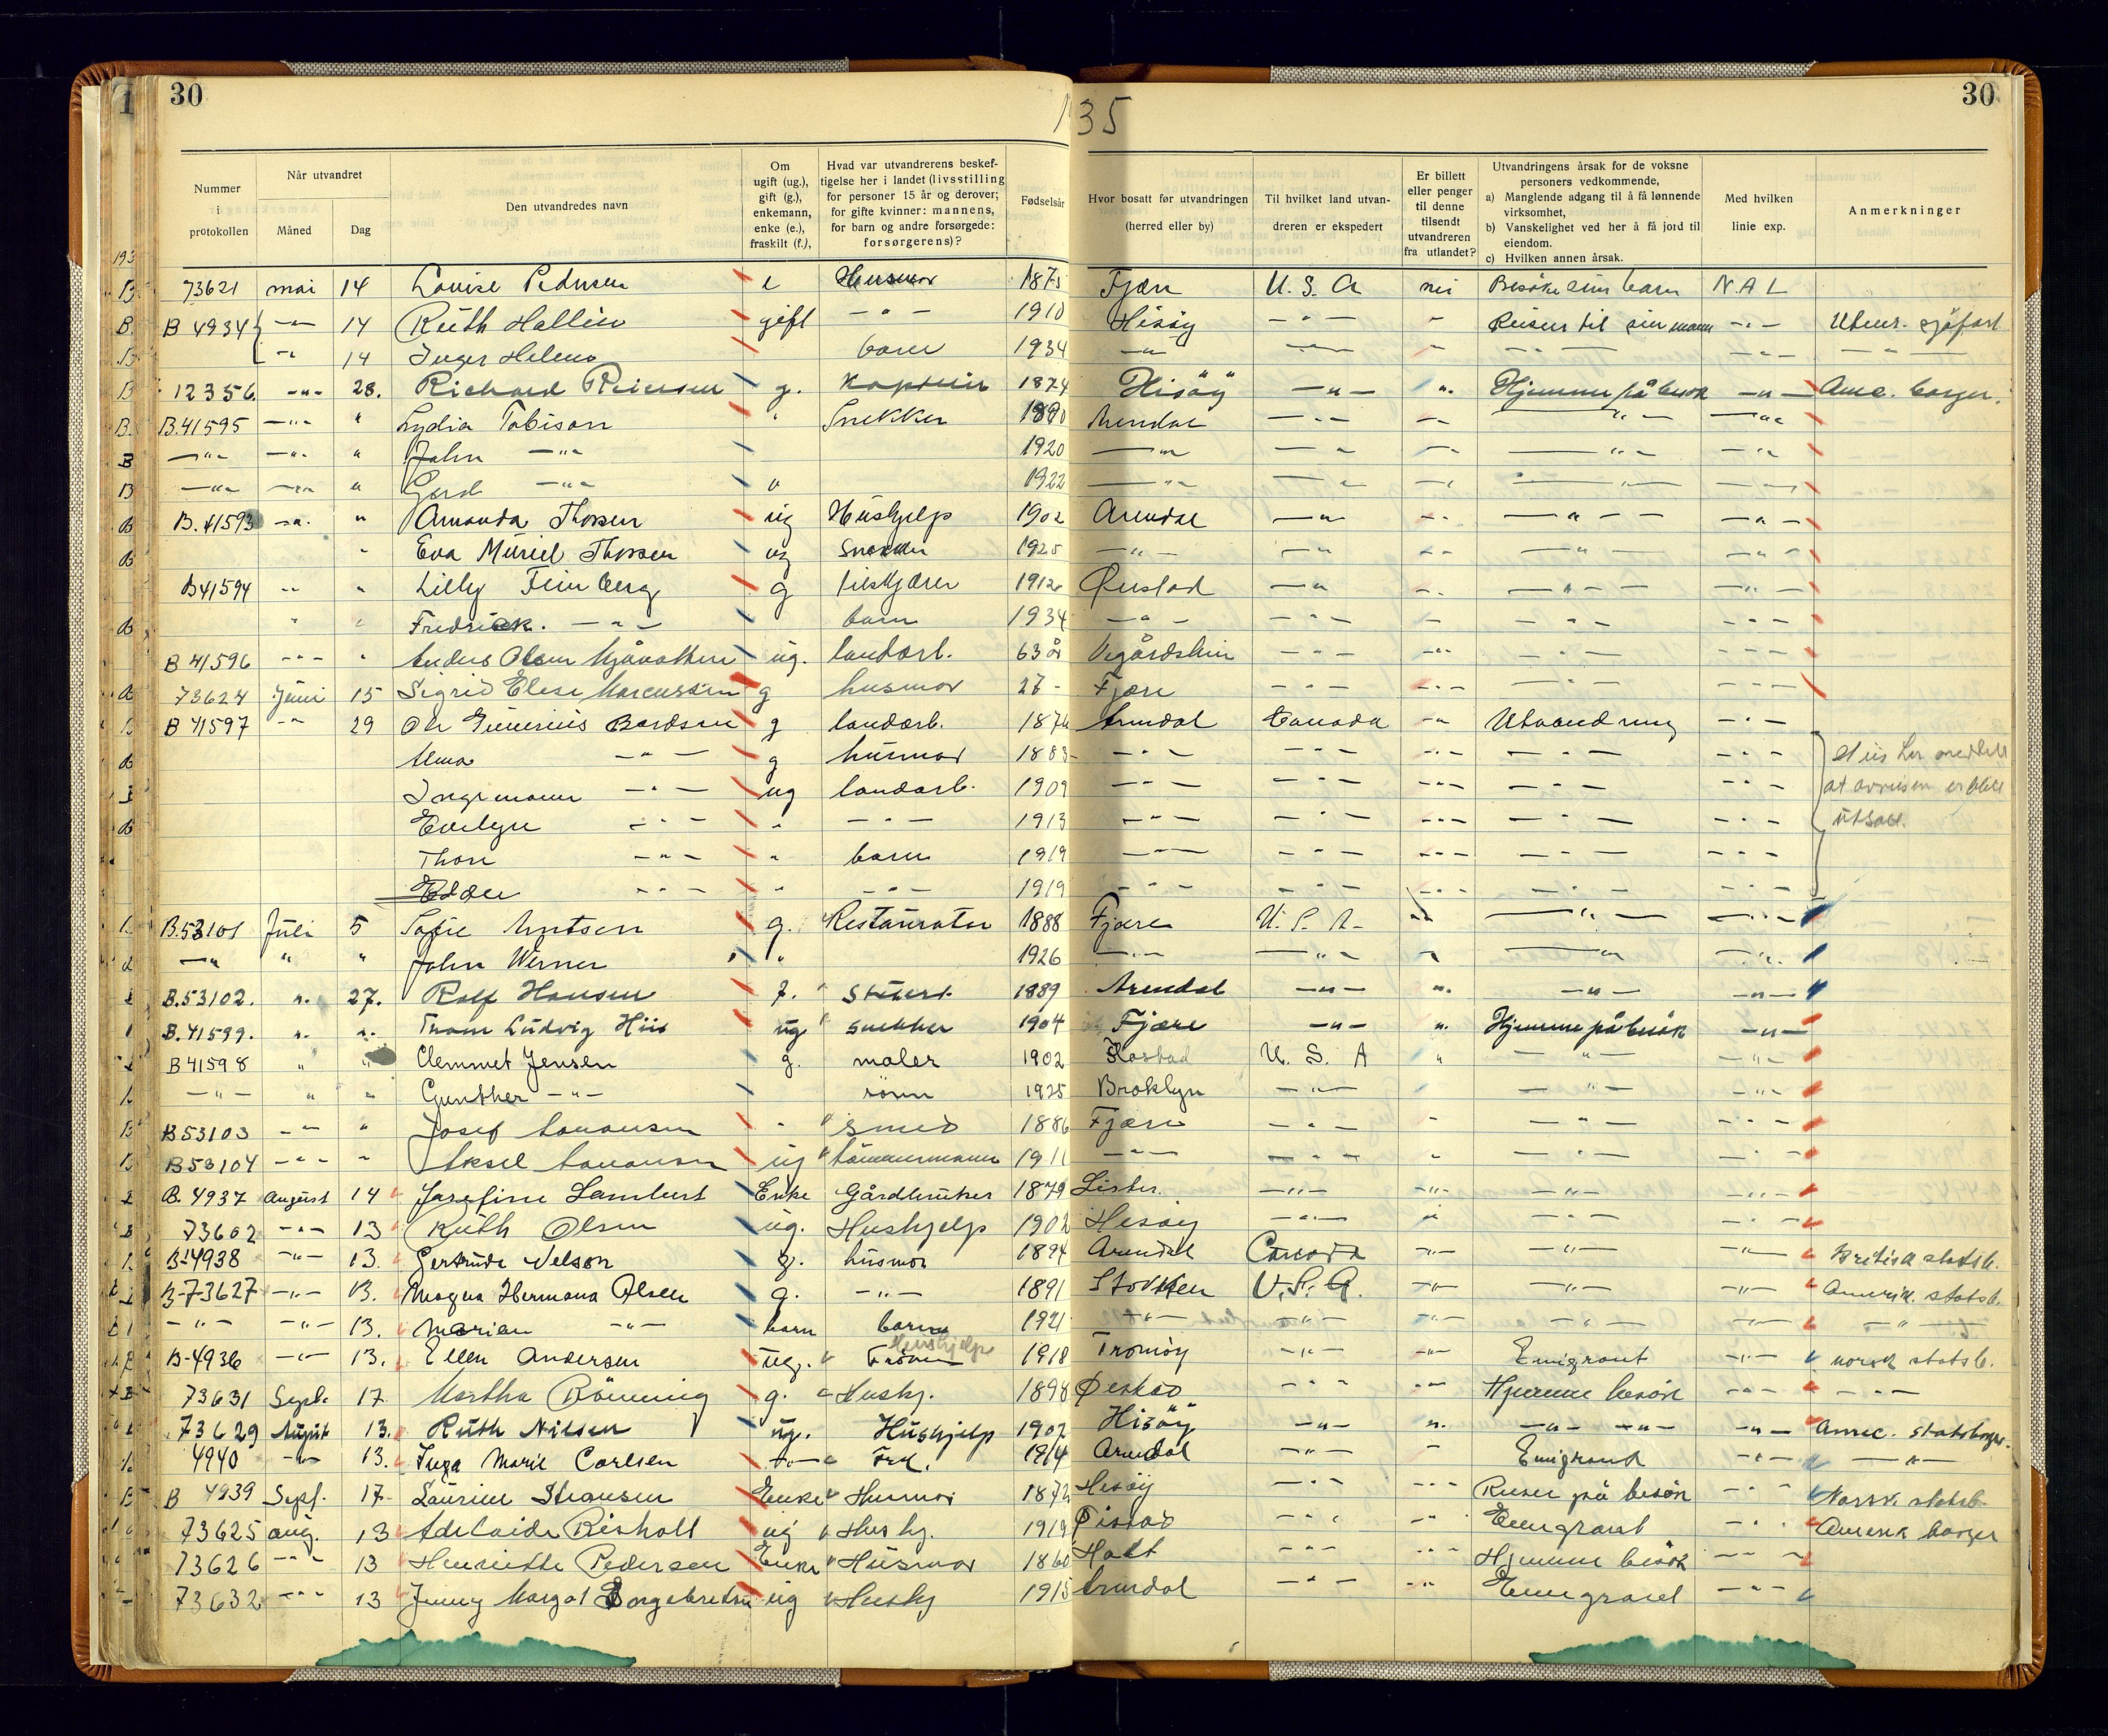 30
30
1935
Nummer i protokollen
Når utvandret
Måned
Dag
Den utvandredes navn
Om ugift (ug.), gift (g.), enkemann, enke (e.), fraskilt (f.),
Hvad var utvandrerens beskef-tigelse her i landet (livsstilling for personer 15 år og derover; for gifte kvinner: mannens, for barn og andre forsørgede: forsørgerens)?
Fødselsår
Hvor bosatt før utvandringen (herred eller by)
Til hvilket land utvan-dreren er ekspedert
Er billett eller penger til denne tilsendt utvandreren fra utlandet?
Utvandringens årsak for de voksne personers vedkommende,
a) Manglende adgang til å få lønnende virksomhet,
b) Vanskelighet ved her å få jord til eiendom.
c) Hvilken annen årsak.
Med hvilken linie exp.
Anmerkninger
193
B 73621 mai 14 Lovise Pedersen e Husmor 1875 Fjære U. S. A nei Besøke sine barn N A L
B B 4934 -"- 14 Ruth Hallin gift -"- 1910 Hisöy -"- - Reiser til sin mann -"- Utenr. sjöfart
B -"- 14 Inger Helene barn 1934 -"- -"- - -"- -"- -"-
B 12356 -"- 28. Richard Reiersen g. Kaptein 1874 Hisöy -"- " Hjemme på besök -"- Ame. borger.
B. B.41595 -"- " Lydia Tobison " Snekker 1890 Arendal -"- -"- -"- -"-
B -"- -"- " John -"- 1920 -"- -"- -"- -"- -"-
B -"- -"- " Gerd -"- " 1922 -"- -"- -"- -"- -"-
B B. 41593 -"- " Amanda Thorsen ug Hushjelp 1902 Arendal -"- -"- -"- -"-
B " Eva Muriel Thorsen ug Snekker 1925 -"- -"- -"- -"- -"-
B41594 -"- " Lilly Feinberg g 1912 Øiestad -"- -"- -"- -"-
B " " Fredrick. -"- barn 1934 -"- -"- - -"- -"-
B 41596 -"- " Anders Olsen ug. landarb. 63 år Vegårdshei -"- -"- -"- -"-
B 73624 Juni 15 Sigrid Elise Marcussen g husmor 27 - Fjære -"- -"- -"- -"-
B B 41597 -"- 29 Ole Gunerius Bardsen g landarb. 1874 Arendal Canada -"- Utvandring -"-
B Alma -"- g husmor 1883 -"- -"- -"- -"- -"- at avreisen er blitt utsatt.
B Ingemann -"- ug landarb. 1909 -"- -"- -"- -"- -"-
B Evelyn -"- " -"- 1913 -"- -"- -"- -"- -"-
Thore -"- " barn 1919 -"- -"- -"- -"- -"-
-"- " -"- 1919 -"- -"- -"- -"- -"-
B.53101 Juli 5 Sofie Arntsen g. Restauratør 1888 Fjære U. S. A. -"- -"- -"-
-"- " " John Werner " 1926 -"- -"- " -"- -"-
B.53102. ". 27. Rolf Hansen f. Stuert. 1889 Arendal -"- ". -"- -"-
B.41599. ". ". Ludvig Hiis ug snekker 1904 Fjære -"- ". Hjemme på besök -"-
B 41598 " " Clemmet Jensen g. maler 1902 U. S. A " -"- -"-
-"- " " Gunther -"- sönn 1925 Broklyn -"- " -"- -"-
B B53103 -"- " Josef Aanonsen " smed 1886 Fjære -"- - -"- -"-
B B53104 -"- " Aksel Aanonsen ug tömmermann 1911 -"- -"- - -"- -"-
B. 4937 August 14 Josefine Lambert Enke Gårdbruker 1879 Lister. -"- -"- -"- -"-
73602 -"- 13 Ruth Olsen ug. Hushjelp 1902 Hisöy -"- " -"- -"-
B-4938 -"- 13. Gertrude Nelson g. husmor 1894 Arendal Canada -"- -"- -"- Britisk statsb.
B-73627 -"- 13. Magna Hermana Olsen g. -"- 1891 Stokken U. S. A. -"- -"- -"- Amerik. statsb.
-"- -"- 13. Marian -"- barn barn 1921 -"- -"- -"- -"- -"- -"-
B-4936 -"- 13. Ellen Andersen Ug. Fröken Hushjelp 1918 Tromöy -"- -"- Emigrant -"- norsk statsb.
73631 Sept. 17 Martha Rönning g. Hushj. 1898 Øiestad -"- -"- Hjemme besök -"- -"-
73629 August 13. Ruth Nilsen ug. Hushjelp 1902 Hisöy -"- ". -"- -"- -"- Amec. statsborger.
4940 -"- 13. Inga Marie Carlsen -"- Frk. 1914 Arendal -"- - Emigrant -"- -"-
B B 4939 Sept. 17 Laurine Stiansen Enke Husmor 1872 Hisöy -"- -"- Reiser på besök -"- Norsk. statsb.
73625 aug. 13 Adelaide Risholt ug Hushj. 1919 Øistad -"- -"- Emigrant -"- Amerik borger
73626 -"- 13 Henriette Pedersen Enke Husmor 1860 Holt -"- -"- Hjemme besök -"-
73632 -"- 13 Jenny Margot ug Hushj 1915 Arendal -"- -"- Emigrant -"-